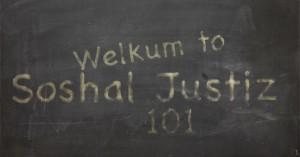 Welkum to
Soshal Justiz
101